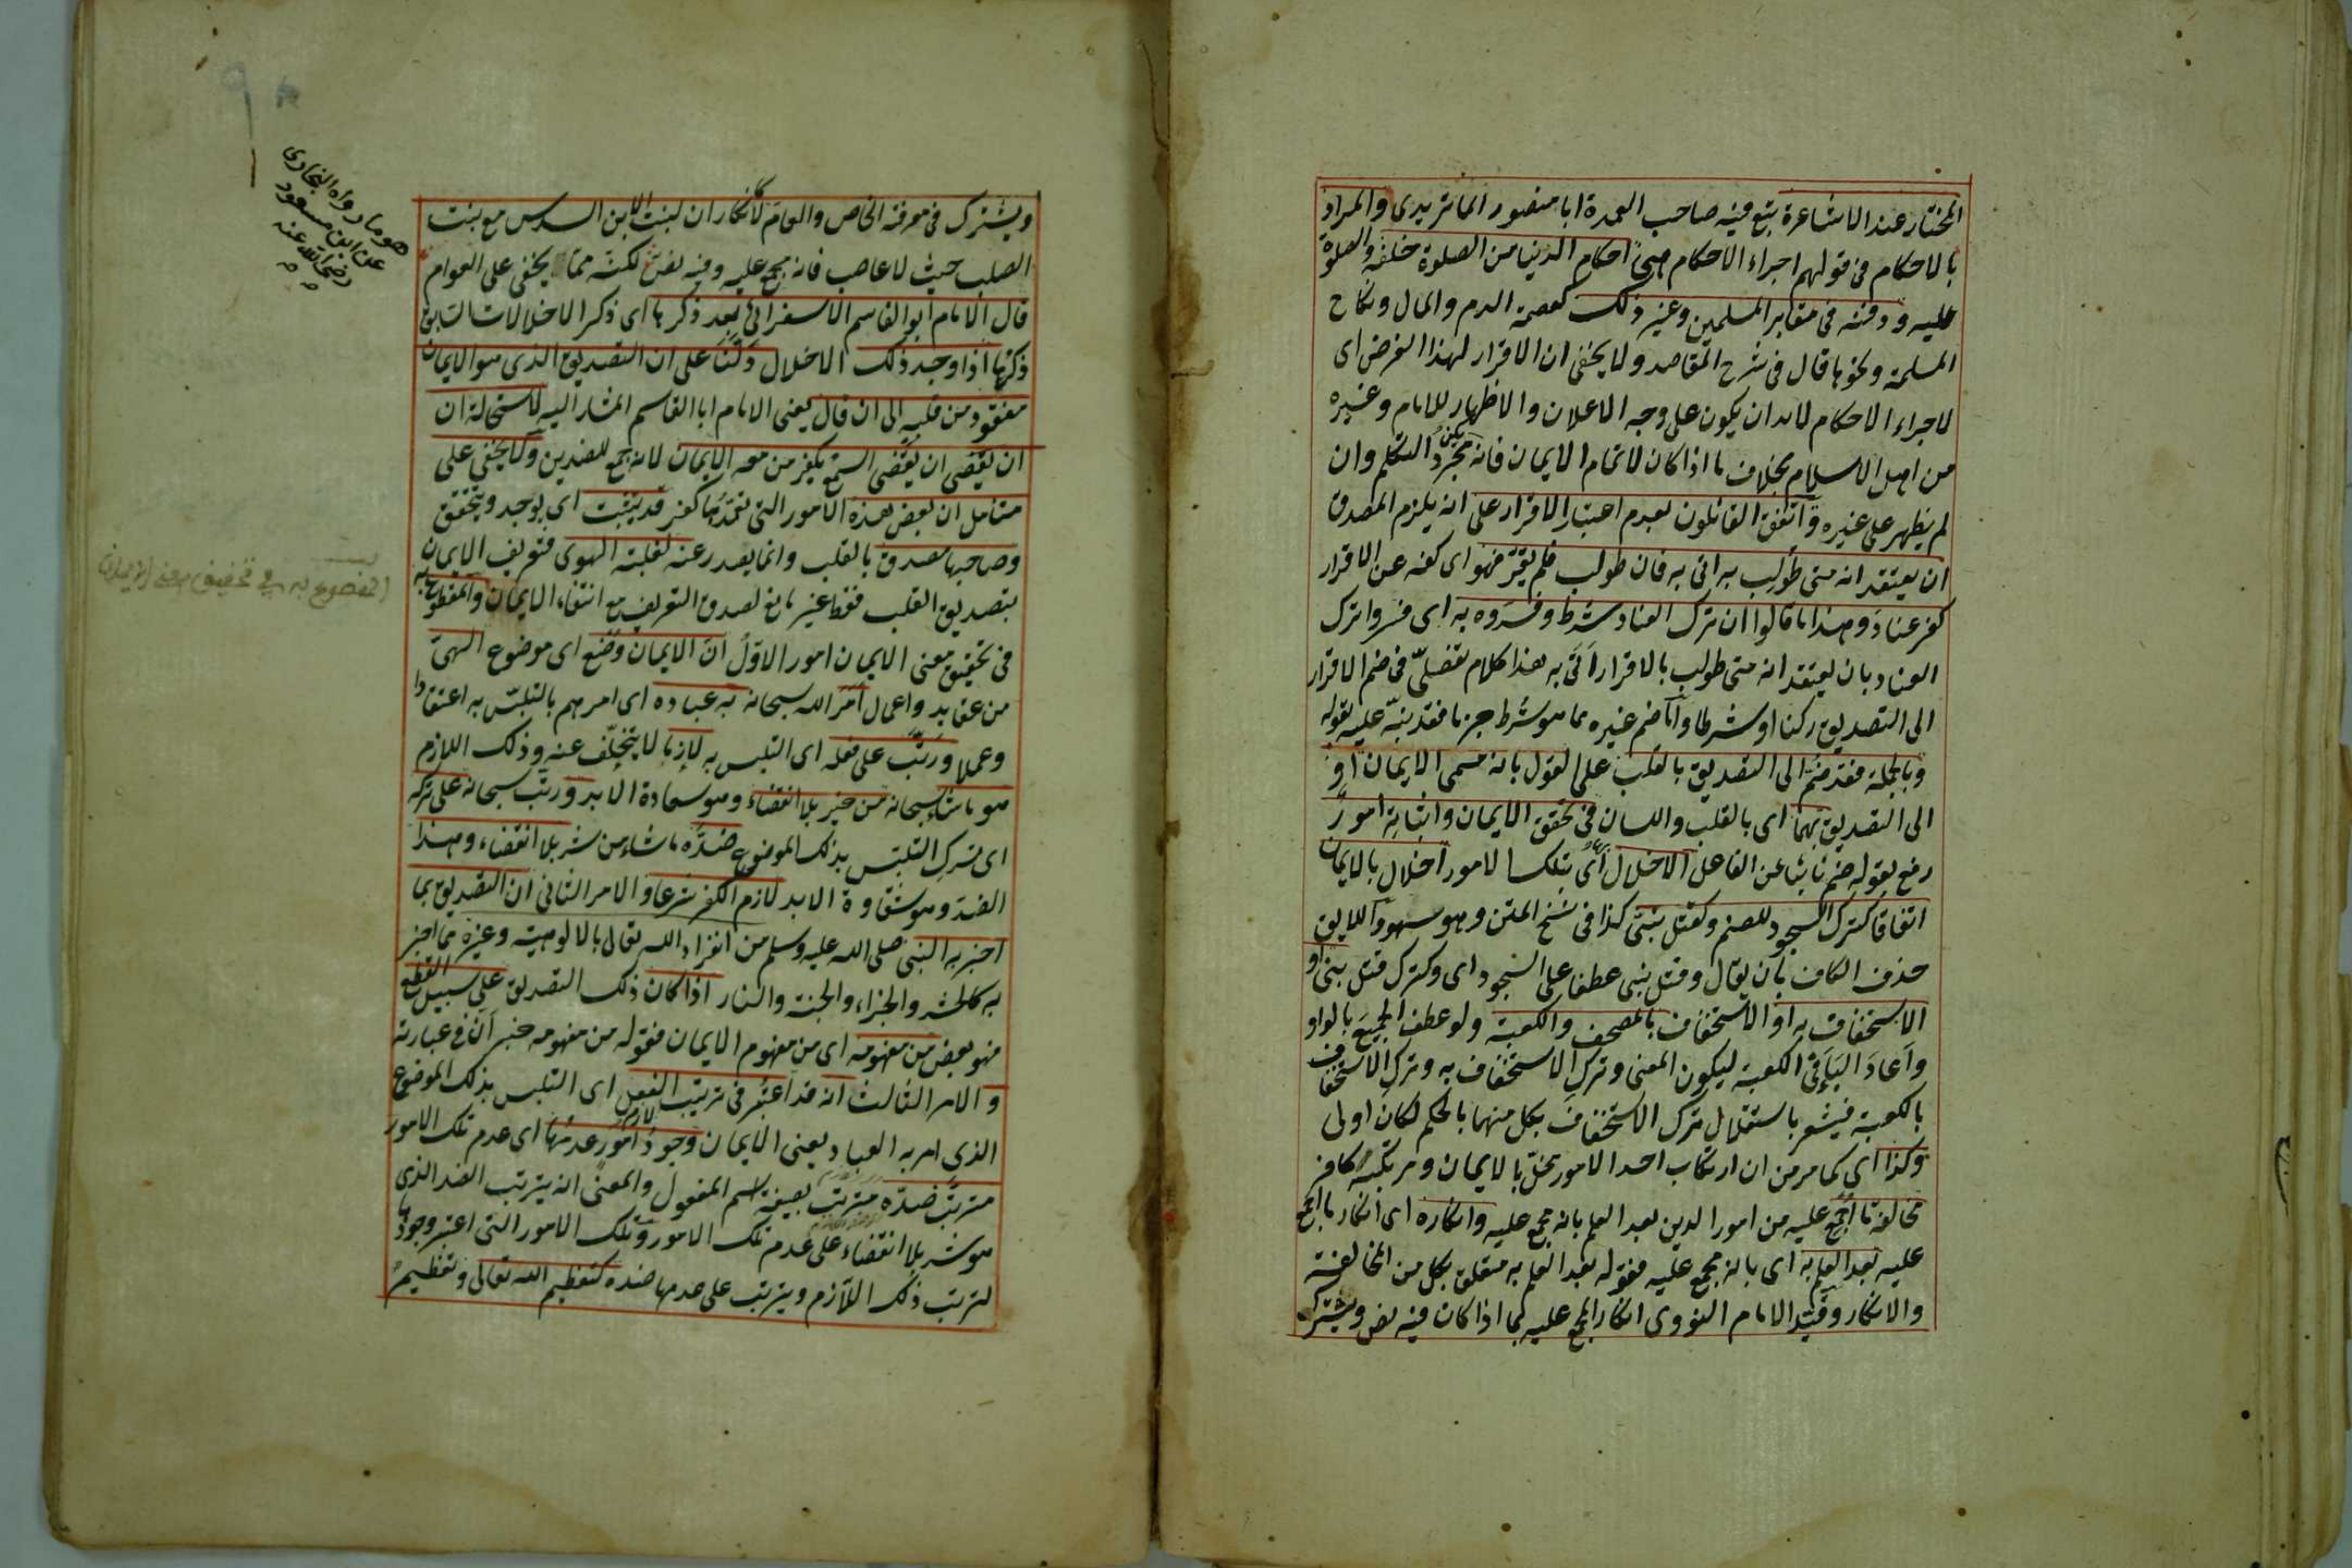 المختار عند الاشاعرة تبع فيه صاحب العمدة ابا منصور الماتريدى والمراد
بالاحكام فى قولهم اجراء الاحكام هى احكام الدنيا من الصلوة خلفه والصلوة
عليه ودفنه فى مقابر المسلمين وغير ذلك كعصمة الدم والمال ونكاح
المسلمة ونحوها قال فى شرح المقاصد ولا يخفى ان الاقرار لهذا الغرض اى
لاجراء الاحكام لابد ان يكون على وجه الاعلان والاظهار للامام وغيره
من اهل الاسلام بخلاف ما اذا كان لاتمام الايمان فانه يكفى مجرد التكلم وان
لم يظهر على غيره واتفق القائلون بعدم اعتبار الاقرار على انه يلزم المصدق
ان يعتقد انه متى طولب به اتى به فان طولب فلم يقر فهو اى كفه عن الاقرار
كفر عناد وهذا ما قالوا ان ترك العناد شرط وفسروه به اى فسروا ترك
العناد بان يعتقد انه متى طولب بالاقرار اتى به هذا كلام تفصلى فى ضم الاقرار
الى التصديق ركنا او شرطا واما ضم غيره مما هو شرط جزما فقد نبه عليه بقوله
وبالجملة فقد ضم الى التصديق بالقلب على القول بانه مسمى الايمان او
الى التصديق بهما اى بالقلب واللسان فى تحقق الايمان واثباته امور
رفع بقوله ضم نائبا عن الفاعل الاخلال بها اى بتلك الامور اخلال بالايمان
اتفاقا كترك السجود للصنم وكقتل نبى كذا فى نسخ المتن وهو سهو واللايق
حذف الكاف بان يقال وقتل نبى عطفا على السجود اى وكترك قتل نبى او
الاستخفاف به او الاستخفاف بالمصحف والكعبة ولو عطف الجميع بالواو
واعاد الباء فى الكعبة ليكون المعنى وترك الاستخفاف به وترك الاستخفاف
بالكعبة فيشعر باستقلال ترك الاستخفاف بكل منهما بالحكم لكان اولى
وكذا اى كما مر من ان ارتكاب احد الامور مخل بالايمان ومرتكبه كافر
مخالفة ما اجمع عليه من امور الدين بعد العلم بانه مجمع عليه وانكاره اى انكار ما اجمع
عليه بعد العلم به اى بانه مجمع عليه فقوله بعد العلم به متعلق بكل من المخالفة
والانكار وقيد الامام النووى انكار المجمع عليه بما اذا كان فيه نص ويشترك
ويشترك فى معرفة الخاص والعام لا كانكار ان لبنت الابن السدس مع بنت
الصلب حيث لا عاصب فانه مجمع عليه وفيه نص لكنه مما يخفى على العوام
قال الامام ابو القاسم الاسفرائى بعد ذكرها اى ذكر الاخلالات السابق
ذكرها اذا وجد ذلك الاخلال دلنا على ان التصديق الذى هو الايمان
مفقود من قلبه الى ان قال يعنى الامام ابا القاسم المشار اليه لاستحالة ان
ان يقضى ان يقضى السمع بكفر من معه الايمان لانه جمع للضدين ولا يخفى على
متأمل ان بعض هذه الامور التى تعمدها كفر قد يثبت اى يوجد ويتحقق
وصاحبها مصدق بالقلب وانما يصدر عنه لغلبة الهوى فتعريف الايمان
بتصديق القلب فقط غير مانع لصدق التعريف مع انتفاء الايمان والمقطوع به
فى تحقيق معنى الايمان امور الاول ان الايمان وضع اى موضوع الهى
من عقايد واعمال امر الله سبحانه به عباده اى امرهم بالتلبس به اعتقادا
وعملا ورتب على فعله اى التلبس به لازما لا يتخلف عنه وذلك اللازم
هو ما شاء سبحانه من خير بلا انقضاء وهو سعادة الابد ورتب سبحانه على تركه
اى ترك التلبس بذلك الموضوع ضده ما شاء من شر بلا انقضاء وهذا
الضد وهو شقاوة الابد لازم الكفر شرعا والامر الثانى ان التصديق بما
اخبر به النبى صلى الله عليه وسلم من انفراد الله تعالى بالالوهية وغيره مما اخبر
به كالحشر والجزاء والجنة والنار اذا كان ذلك التصديق على سبيل القطع
فهو بعض من مفهومه اى من مفهوم الايمان فقوله من مفهومه خبر ان فى عبارته
والامر الثالث انه قد اعتبر فى ترتيب الفعل اى التلبس بذلك الموضوع
الذى امر به العباد يعنى الايمان لازم وجود امور عدمها اى عدم تلك الامور
مترتب ضده مترتب بصيغة اسم المفعول والمعنى انه يترتب الضد الذى
هو شر بلا انقضاء على عدم تلك الامور وتلك الامور التى اعتبر وجودها
لترتب ذلك اللازم ويترتب على عدمها ضده كتعظيم الله تعالى وتعظيم
هو ما رواه البخارى
عن ابن مسعود
رضى الله عنه
به فى تحقيق معنى الايمان